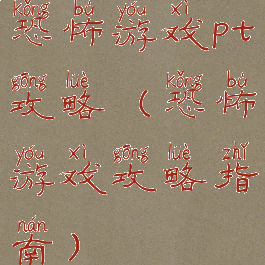 kǒng bù yóu xì
恐怖游戏pt
gōng lüè kǒng bù
攻略(恐怖
yóu xì gōng lüè zhǐ
游戏攻略指
nán
南)